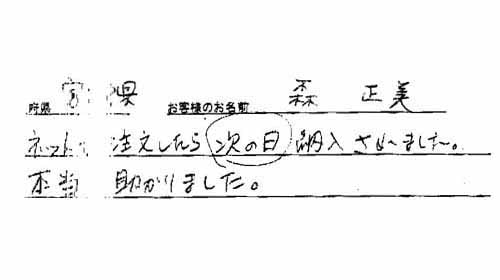 府県 宮 県 お客様のお名前 森 正美
ネットで 注文したら 次の日 納入 されました。
本当 助かりました。